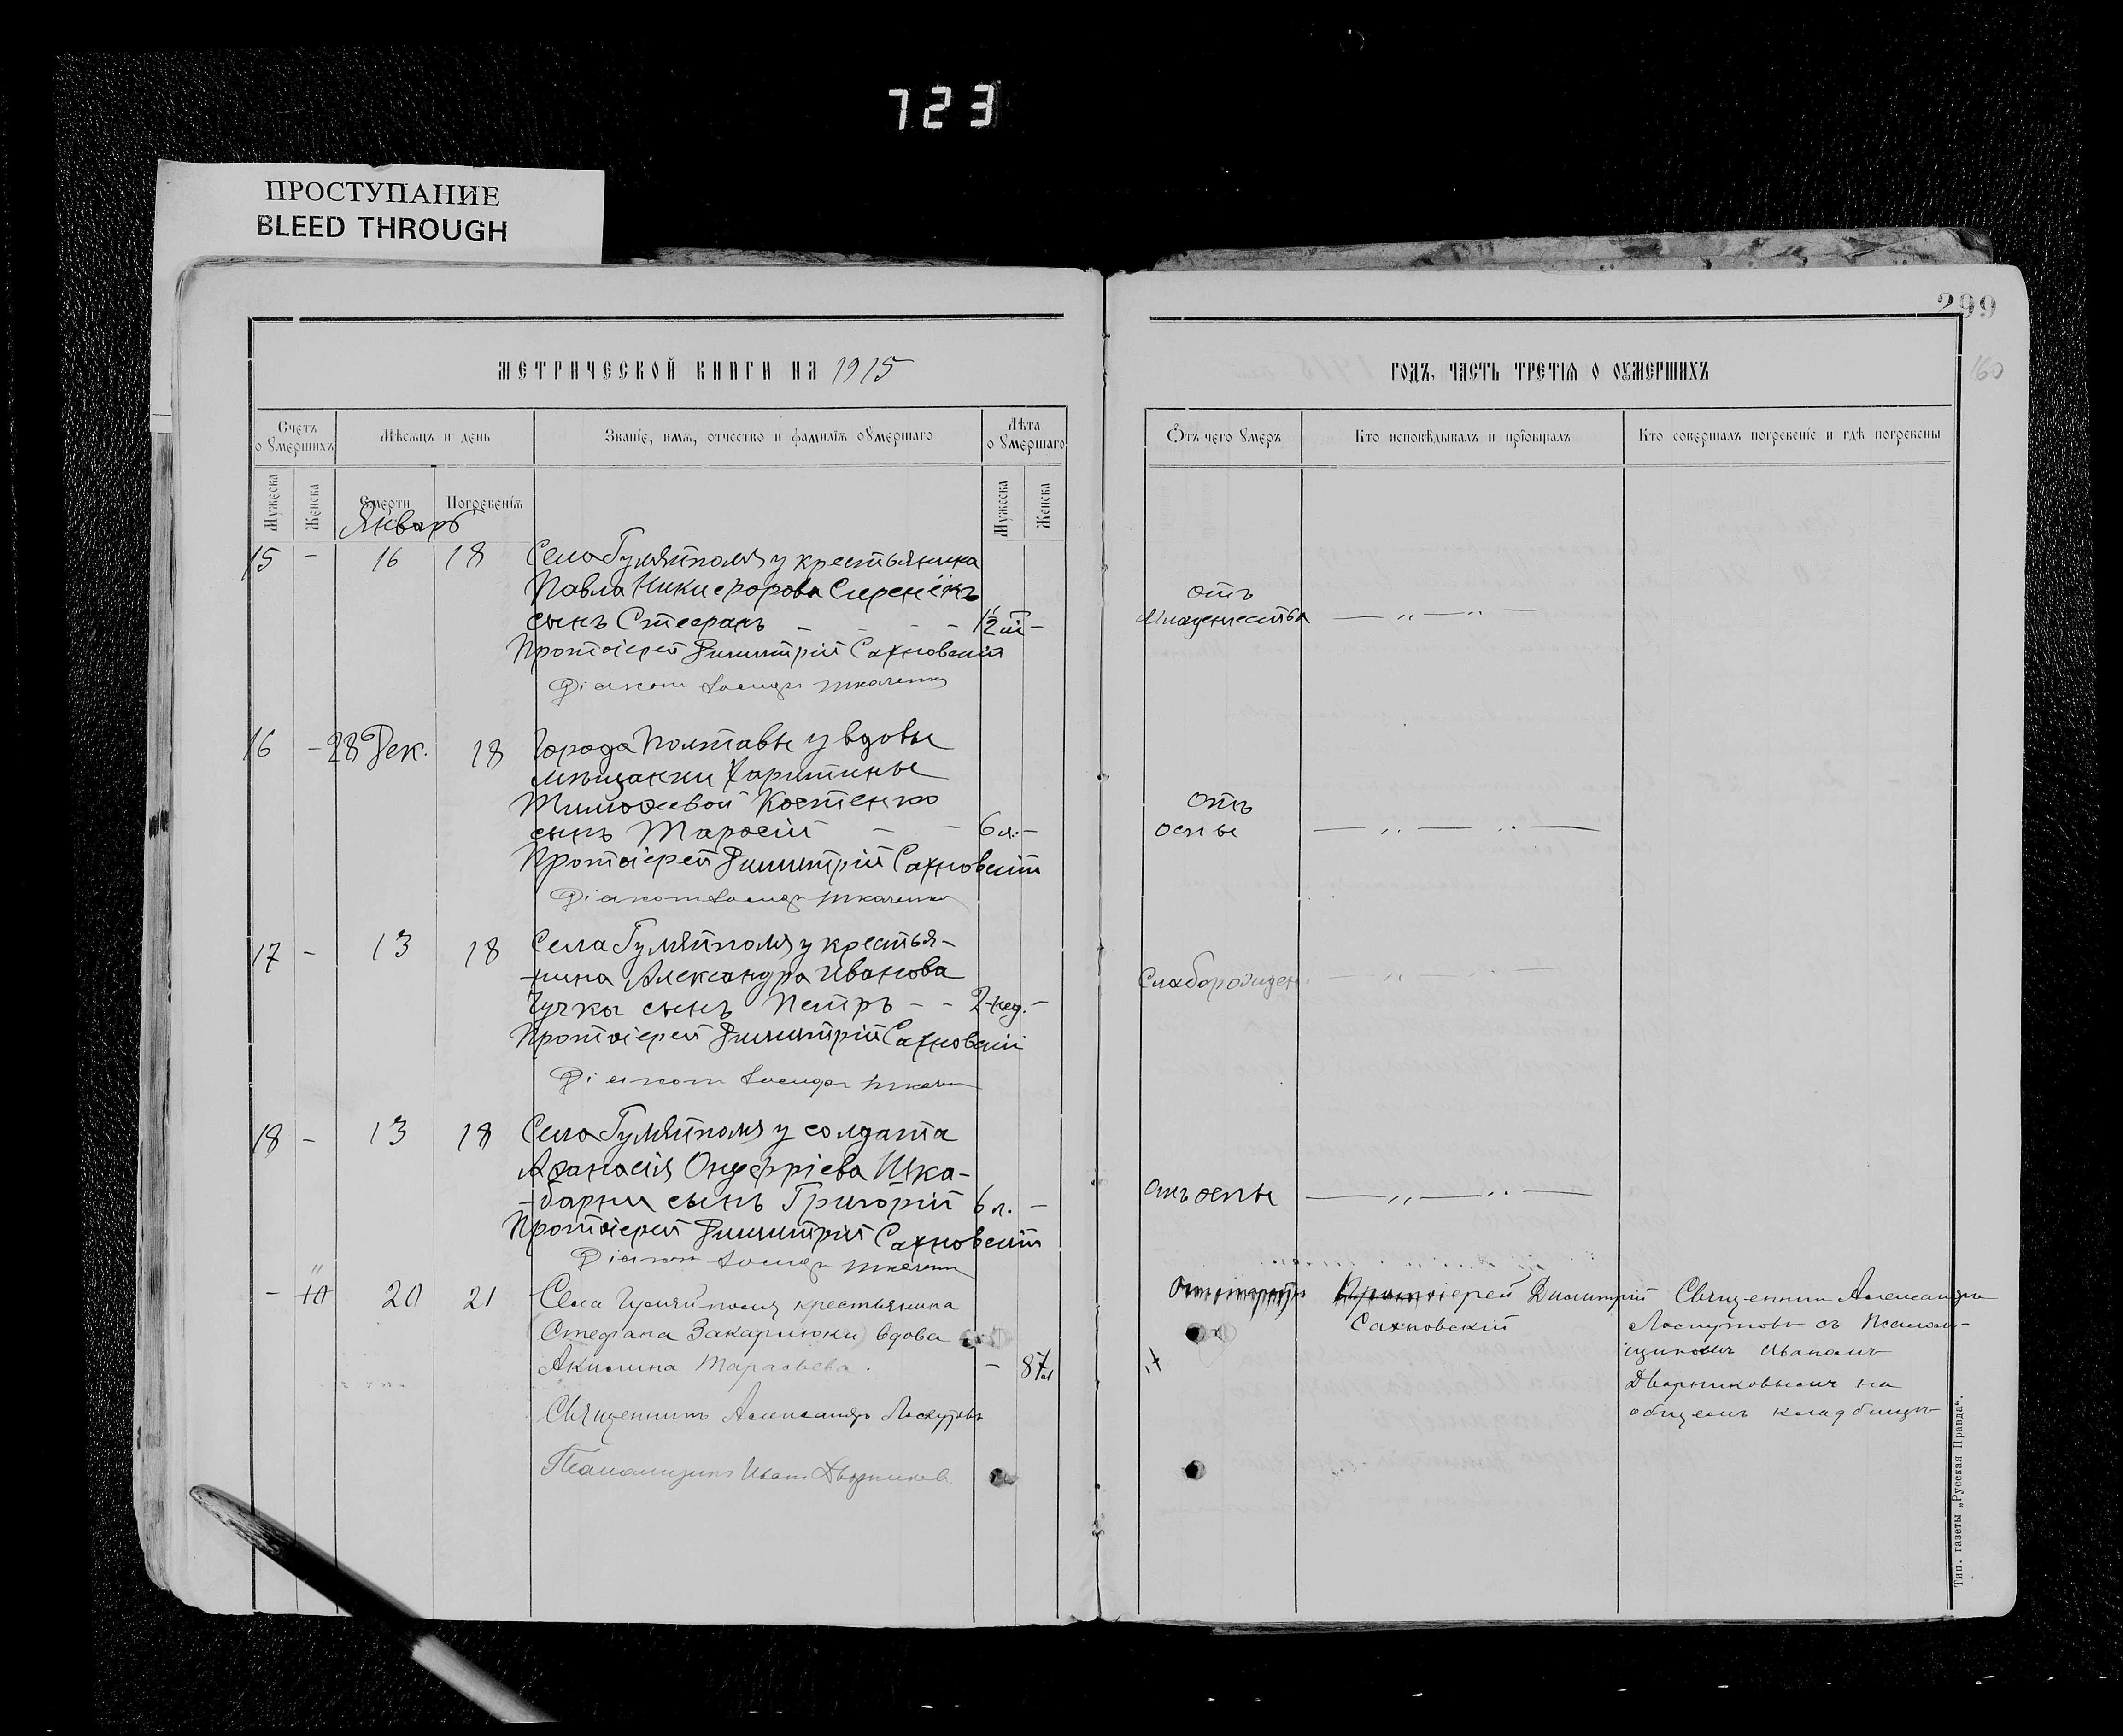 723
ПРОСТУПАНИЕ
BLEED THROUGH
299
160
МЕТРИЧЕСКОЙ КНИГИ НА 1915
ГОДЪ, ЧАСТЬ ТРЕТІѦ О ОУМЕРШИХЪ
Счетъ оумершихъ
Мѣсѧцъ и день
Званіе, имѧ, отчество и фамиліѧ оумершаго
Лѣта оумершаго
Ѿъ чего оумеръ
Кто исповѣдывалъ и пріобщалъ
Кто совершалъ погребеніе и гдѣ погребены
Мужеска
Женска
Смерти
Погребеніѧ
Мужеска
Женска
Январь
15 - 16 18 Села Гуляйполя у крестьянина
Павла Никифорова
сынъ Стефанъ - - - -
отъ
младенчества — „ — „ —
Протоіерей Димитрій Сахновскій
Діаконъ Ткаченко
16 - 28 Дек. 18 Города Полтавы у вдовы
мѣщанки Харитины
Тимофеевой Костенко
сынъ Тарасій - - 6 л. -
отъ
оспы — „ — „ —
Протоіерей Димитрій Сахновскій
Діаконъ Ткаченко
17 - 13 18 Села Гуляйполя у крестья-
-нина Александра Иванова
Гучка сынъ Петръ - - 2 нед. -
Слаборожден. — „ — „
Протоіерей Димитрій Сахновскій
Діаконъ
18 - 13 18 Села Гуляйполя у солдата
Афанасія Онуфріева Шка-
-барни сынъ Григорій 6 л. -
Отъ оспы — „ — „ —
Протоіерей Димитрій Сахновскій
Діаконъ Ткаченко
- 11 10 20 21 Села Гуляйполя крестьянина
Стефана Закарлюки вдова
Акилина Тарасьева. - 87 л
Отъ старости
Протоіерей Димитрій
Сахновскій
Священникъ Александръ
Лоскутовъ съ Псалом-
щикомъ Иваномъ
Дворниковымъ на
общемъ кладбищѣ
Священникъ Александръ Лоскутовъ
Псаломщикъ Иванъ Дворниковъ.
Тип. газеты „Русская Правда“.